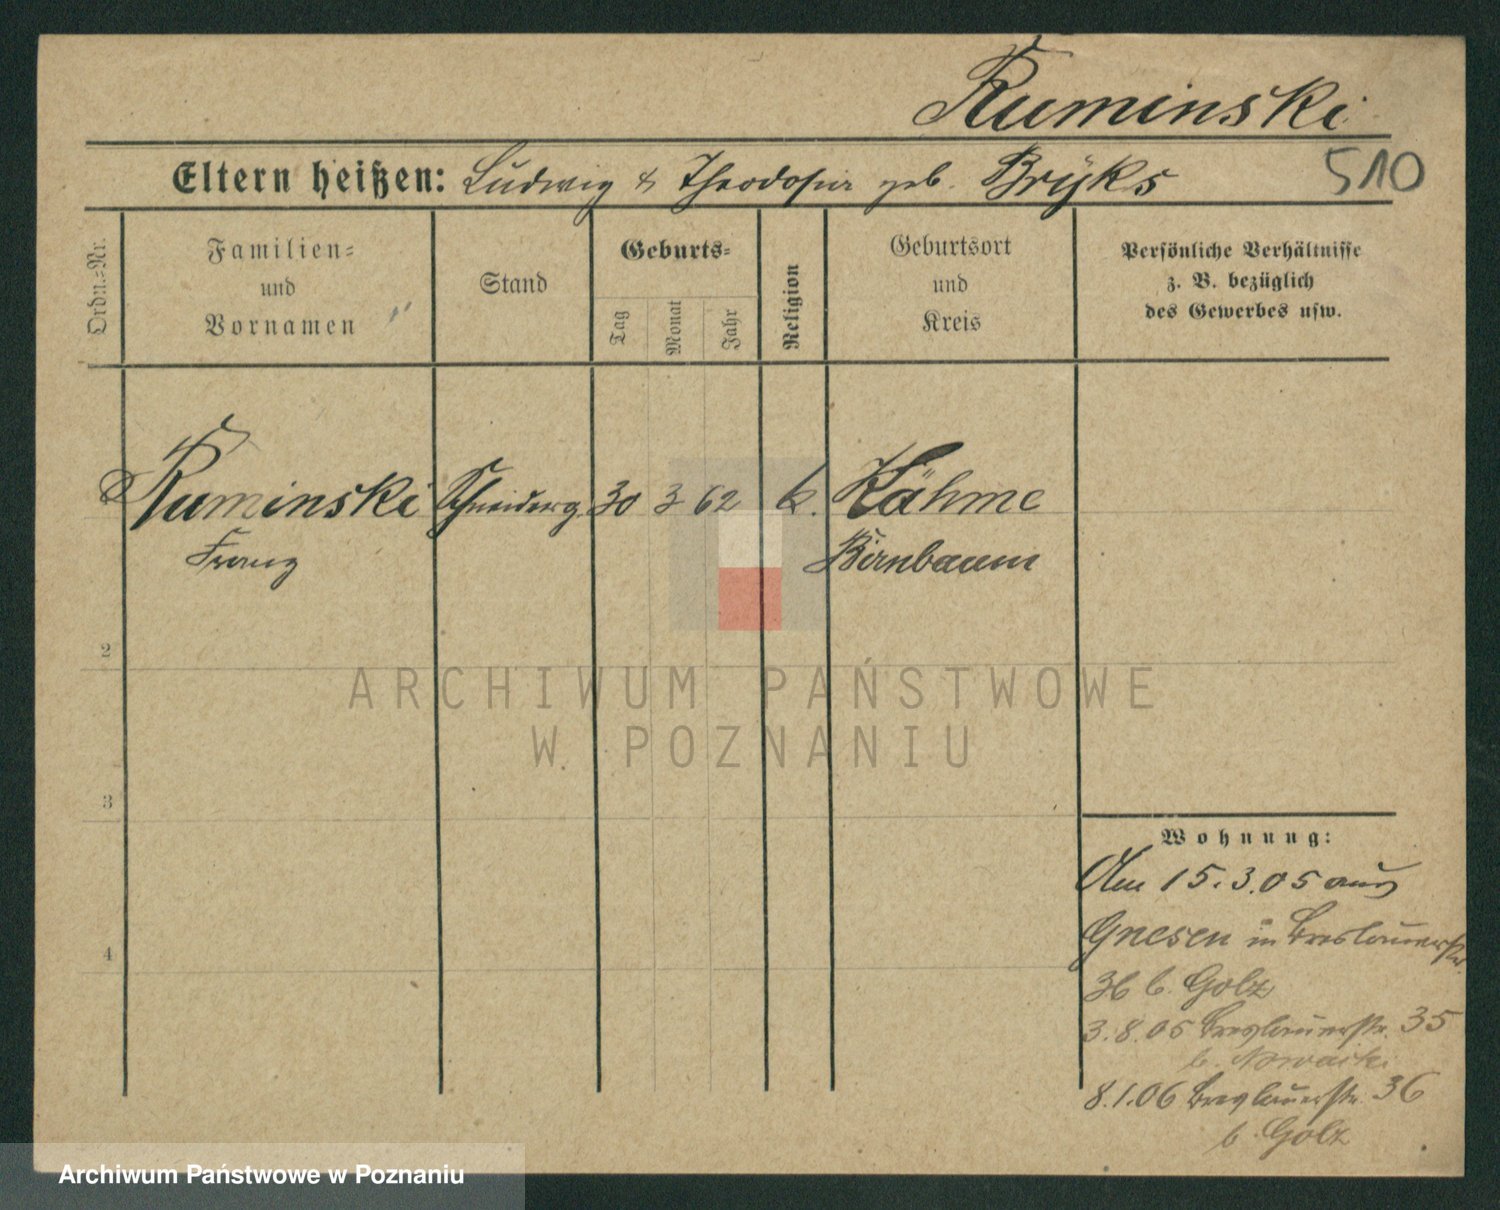 Ruminski
Eltern heißen: Ludwig & Theodosia geb. Bryks
510
Ordn.=Nr.
Familien=
und
Vornamen
Stand
Geburts=
Tag
Monat
Jahr
Religion
Geburtsort
und
Kreis
Persönliche Verhältnisse
z. B. bezüglich
des Gewerbes usw.
Ruminski Schneiderg. 30 3 62 k. Kähme
Franz Birnbaum
2
3
4
ARCHIWUM PAŃSTWOWE
W POZNANIU
Wohnung:
Am 15.3.05 aus
Gnesen in Breslauerstr.
36 b. Golz
3.8.05 Breslauerstr. 35
b. Nowacki
8.1.06 Breslauerstr. 36
b. Golz
Archiwum Państwowe w Poznaniu